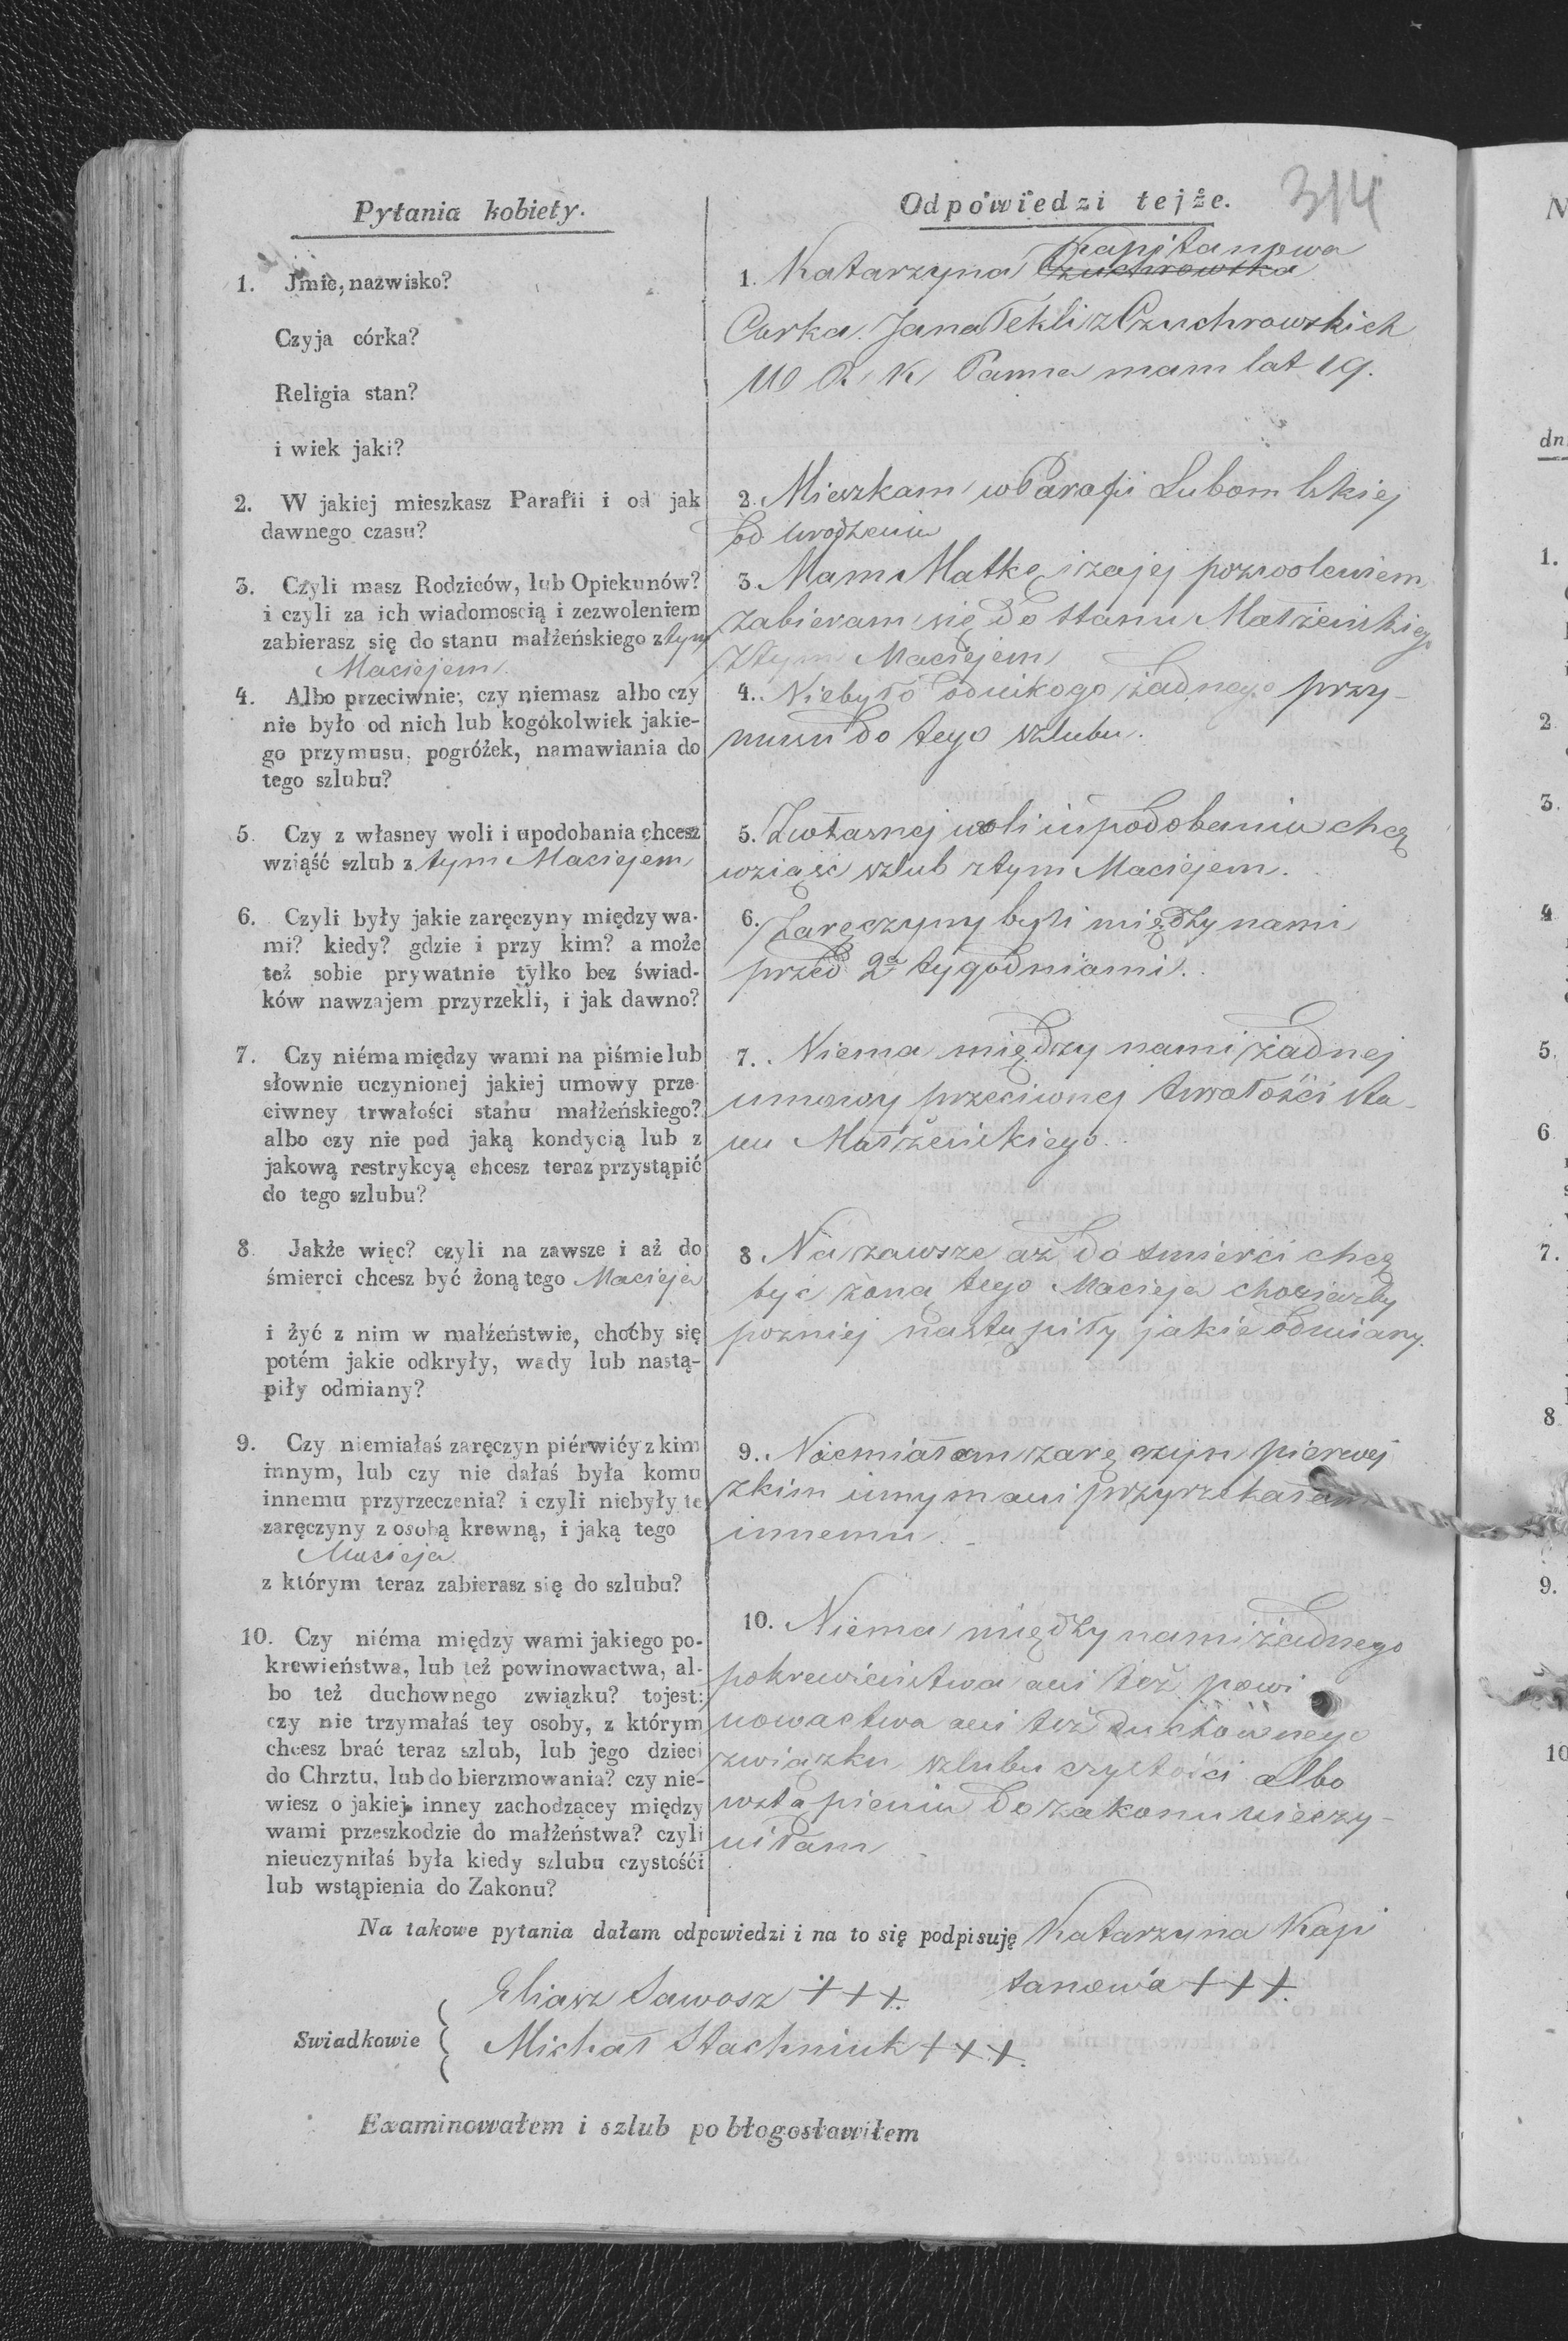 314
Pytania kobiety.
1. Jmie, nazwisko?
Czyja córka?
Religia stan?
i wiek jaki?
2. W jakiej mieszkasz Parafii i od jak
dawnego czasu?
3. Czyli masz Rodziców, lub Opiekunów?
i czyli za ich wiadomoscią i zezwoleniem
zabierasz się do stanu małżeńskiego z tym
Maciejem
4. Albo przeciwnie; czy niemasz albo czy
nie było od nich lub kogokolwiek jakie-
go przymusu, pogróżek, namawiania do
tego szlubu?
5. Czy z własney woli i upodobania chcesz
wziąść szlub z tym Maciejem
6. Czyli były jakie zaręczyny między wa-
mi? kiedy? gdzie i przy kim? a może
też sobie prywatnie tylko bez świad-
ków nawzajem przyrzekli, i jak dawno?
7. Czy niéma między wami na piśmie lub
słownie uczynionej jakiej umowy prze-
ciwney trwałości stanu małżeńskiego?
albo czy nie pod jaką kondycią lub z
jakową restrykcyą chcesz teraz przystąpić
do tego szlubu?
8. Jakże więc? czyli na zawsze i aż do
śmierci chcesz być żoną tego Macieja
i żyć z nim w małżeństwie, choćby się
potém jakie odkryły, wady lub nastą-
piły odmiany?
9. Czy niemiałaś zaręczyn piérwiéy z kim
innym, lub czy nie dałaś była komu
innemu przyrzeczenia? i czyli niebyły te
zaręczyny z osobą krewną, i jaką tego
Macieja
z którym teraz zabierasz się do szlubu?
10. Czy niéma między wami jakiego po-
krewieństwa, lub też powinowactwa, al-
bo też duchownego związku? tojest:
czy nie trzymałaś tey osoby, z którym
chcesz brać teraz szlub, lub jego dzieci
do Chrztu, lub do bierzmowania? czy nie-
wiesz o jakiej inney zachodzącey między
wami przeszkodzie do małżeństwa? czyli
nieuczyniłaś była kiedy szlubu czystości
lub wstąpienia do Zakonu?
Odpowiedzi tejże.
Kapitanowa
1. Katarzyna Czuchrowska
Corka Jana Tekli z Czuchrowskich
W R. K Panna mam lat 19.
2. Mieszkam w Parafii Lubomlskiej
od urodzenia
3. Mam Matkę i za jej pozwoleniem
zabieram się do stanu Małżeńskiego
z tym Maciejem
4. Niebyło od nikogo żadnego przy-
musu do tego szlubu.
5. Z własnej woli i upodobania chcę
wziąść szlub z tym Maciejem.
6. Zaręczyny byli między nami
przed 2a tygodniami.
7. Niema między nami żadnej
umowy przeciwnej trwałości sta-
nu Małżeńskiego.
8 Na zawsze aż do smierci chcę
być żoną tego Macieja chociazby
pozniej nastąpiły jakie odmiany.
9. Niemiałam zaręczyn pierwej
z kim innym ani przyrzekałam
innemu.
10. Niema między nami żadnego
pokrewieństwa ani też powi
nowactwa ani też duchownego
związku szlubu czystości albo
wstąpieniu do zakonu nieczy-
niłam
Na takowe pytania dałam odpowiedzi i na to się podpisuję Katarzyna Kapi
tanowa +++.
Swiadkowie
Eliasz Sawosz +++.
Michał Stachniuk +++.
Examinowałem i szlub pobłogosławiłem
N
dn
1.
2
3.
4
5.
6
7.
8
9.
10